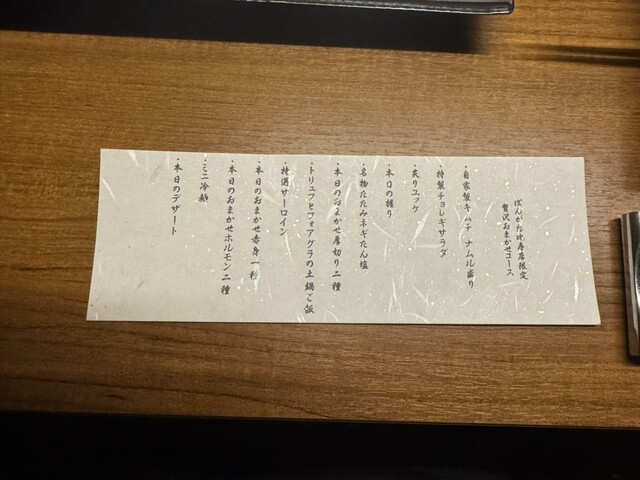 ぽんがら恵寿店限定
贅沢おまかせコース
・自家製キムチ ナムル盛り
・特製チョレギサラダ
・炙りユッケ
・本日の握り
・名物たたみネギたん塩
・本日のおまかせ厚切り二種
・トリュフとフォアグラの土鍋ご飯
・特選サーロイン
・本日のおまかせ赤身一種
・本日のおまかせホルモン二種
・ミニ冷麺
・本日のデザート